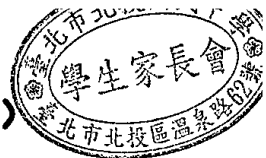 臺北市北投
學生家長會
臺北市北投區溫泉路62號